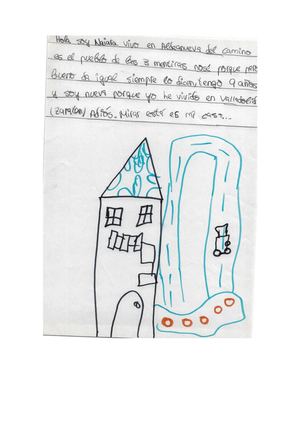 Hola soy Naiara vivo en Aldeanueva del camino
es el pueblo de las 3 mentiras nosé porque pero
bueno da igual siempre lo dicen, tengo 9 años
y soy nueva porque yo he vivido en Valladolid
Adiós. Mirar está es mi casa...